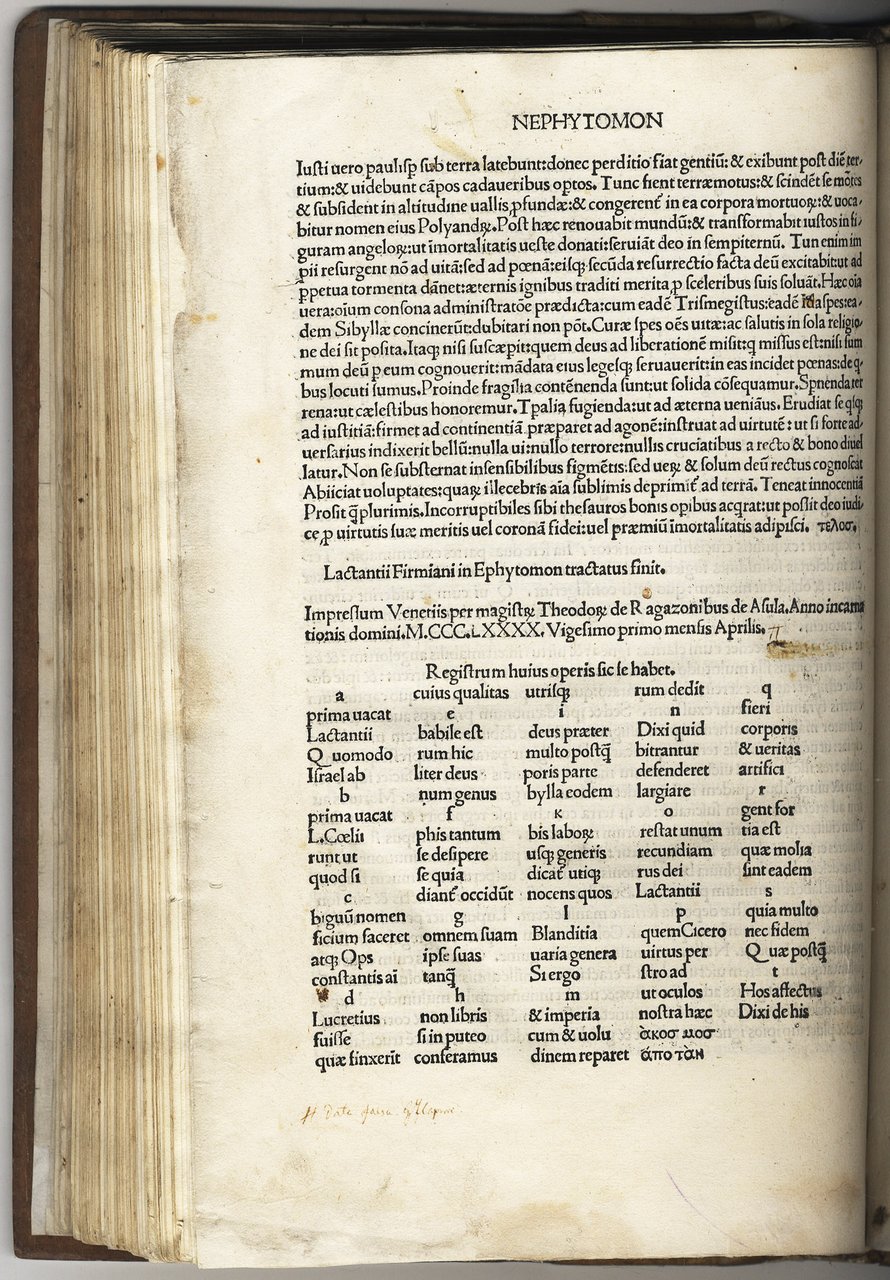 NEPHYTOMON
Iusti uero paulisꝑ sub terra latebunt:donec perditio fiat gentiū: & exibunt post diē ter-
tium:& uidebunt cāpos cadaueribus optos. Tunc fient terræmotus:& scindēt se mōtes
& subsident in altitudine uallis ꝓfundæ:& congerent̄ in ea corpora mortuoꝝ:& uoca-
bitur nomen eius Polyandꝝ. Post hæc renouabit mundū:& transformabit iustos in fi-
guram angeloꝝ:ut īmortalitatis ueste donati:seruiāt deo in sempiternū. Tun enim im
pii resurgent nō ad uitā:sed ad pœnā:eisqꝫ secūda resurrectio facta deū excitabit:ut ad
ꝑpetua tormenta dānet:æternis ignibus traditi merita ꝓ sceleribus suis soluāt. Hæc oīa
uera:oīum consona administratōe prædicta:cum eadē Trismegistus:eadē spes:ea-
dem Sibyllæ concinerūt:dubitari non pōt. Curæ spes oēs uitæ:ac salutis in sola religio-
ne dei sit posita. Itaqꝫ nisi suscæpit:quem deus ad liberationē misit:q missus est:nisi sum
mum deū ꝑ eum cognouerit:mādata eius legesqꝫ seruauerit:in eas incidet pœnas:de q-
bus locuti sumus. Proinde fragilia contēnenda sunt:ut solida cōsequamur. Spnenda ter
rena:ut cælestibus honoremur. Tꝑalia fugienda:ut ad æterna ueniāus. Erudiat se qsqꝫ
ad iustitiā:firmet ad continentiā præparet ad agonē:instruat ad uirtutē: ut si forte ad-
uersarius indixerit bellū:nulla ui:nullo terrore:nullis cruciatibus a recto & bono diuel
latur. Non se substernat insensibilibus figmētis:sed ueꝝ & solum deū rectus cognoscat
Abiiciat uoluptates:quaꝝ illecebris aīa sublimis deprimit̄ ad terrā. Teneat innocentiā
Prosit q̄plurimis. Incorruptibiles sibi thesauros bonis opibus acqrat:ut possit deo iudi-
ce ꝓ uirtutis suæ meritis uel coronā fidei:uel præmiū īmortalitatis adipisci. τελοσ.
Lactantii Firmiani in Ephytomon tractatus finit.
Impressum Venetiis per magistꝝ Theodoꝝ de Ragazonibus de Asula. Anno incarna
tionis domini. M.CCC.LXXXX. Vigesimo primo mensis Aprilis.
Registrum huius operis sic se habet.
a
prima uacat
Lactantii
Quomodo
Israel ab
b
prima uacat
L.Cœlii
runt ut
quod si
c
biguū nomen
ficium faceret
atqꝫ Ops
constantis ai
d
Lucretius
fuisse
quæ finxerīt
cuius qualitas
e
babile est
rum hic
liter deus
num genus
f
phis tantum
se desipere
se quia
diant̄ occidūt
g
omnem suam
ipse suas
tanq̄
h
non libris
si in puteo
conferamus
utrisqꝫ
i
deus præter
multo postq̄
poris parte
bylla eodem
k
bis laboꝝ
usqꝫ generis
dicat̄ utiqꝫ
nocens quos
l
Blanditia
uaria genera
Si ergo
m
& imperia
cum & uolu
dinem reparet
rum dedit
n
Dixi quid
bitrantur
defenderet
largiare
o
restat unum
recundiam
rus dei
Lactantii
p
quem Cicero
uirtus per
stro ad
ut oculos
nostra hæc
ἀκοσ μοσ
ἀπο τὰν
q
fieri
corporis
& ueritas
artifici
r
gent for
tia est
quæ molia
sint eadem
s
quia multo
nec fidem
Quæ postq̄
t
Hos affectus
Dixi de his